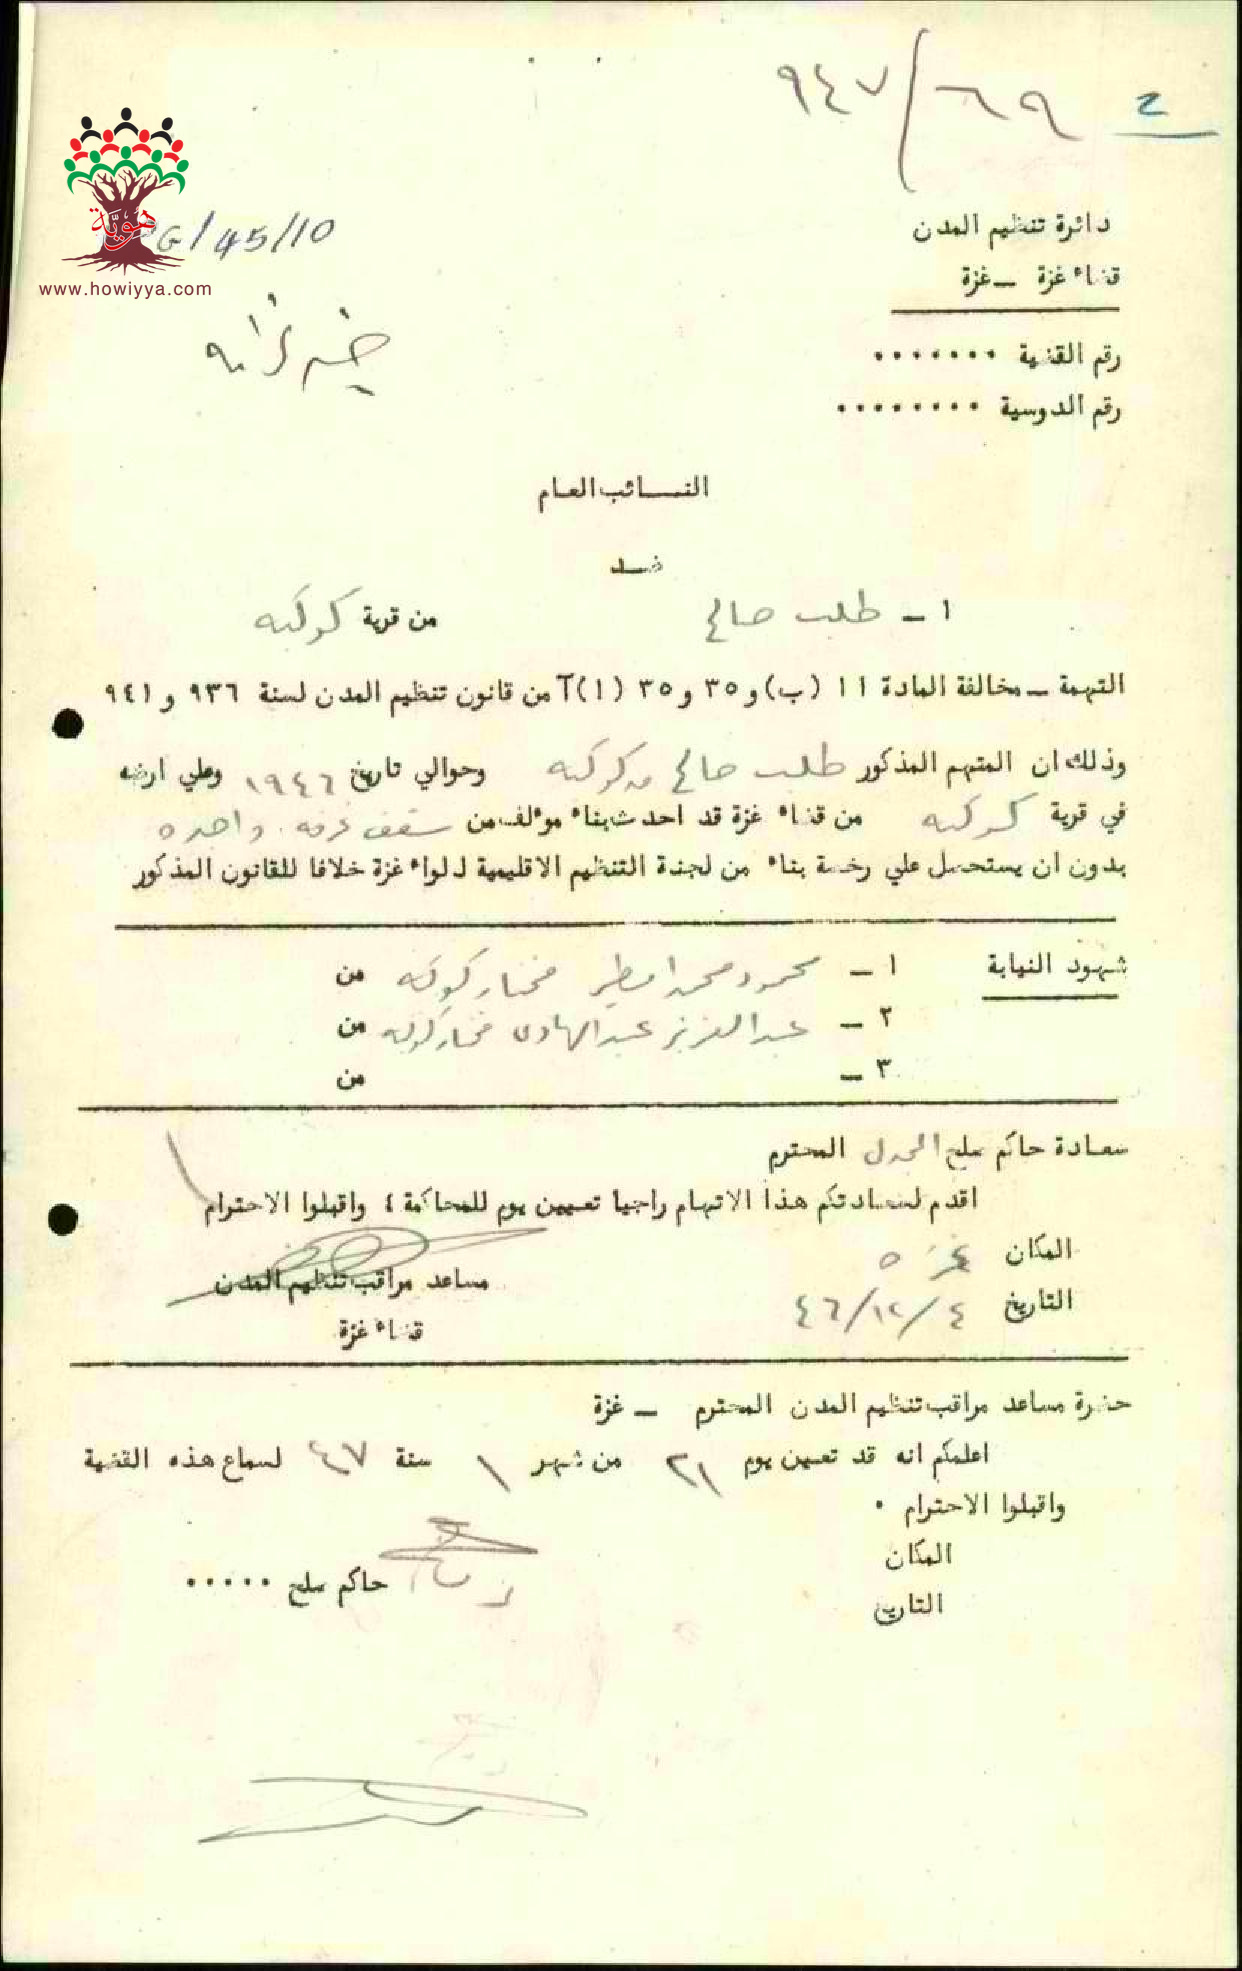 ٦٩/٩٤٧
هوية
G/45/10
www.howiyya.com
دائرة تنظيم المدن
قضاء غزة – غزة
رقم القضية .......
رقم الدوسية ........
النائب العام
ضد
١ – طلب صالح من قرية كوكبه
التهمة – مخالفة المادة ١١ (ب) و ٣٥ و ٣٥ (١) آ من قانون تنظيم المدن لسنة ٩٣٦ و ٩٤١
وذلك ان المتهم المذكور طلب صالح من كوكبه وحوالي تاريخ ١٩٤٦ وعلي ارضه
في قرية كوكبه من قضاء غزة قد احدث بناء موءلف من سقف غرفه واحده
بدون ان يستحصل علي رخصة بناء من لجنة التنظيم الاقليمية للواء غزة خلافا للقانون المذكور
شهود النيابة ١ – محمود محمد امطير مختار كوكبه من
٢ – عبد العزيز عبد الهادي مختار كوكبه من
٣ – من
سعادة حاكم صلح المجدل المحترم
اقدم لسعادتكم هذا الاتهام راجيا تعيين يوم للمحاكمة ٤ واقبلوا الاحترام
المكان غزه
مساعد مراقب تنظيم المدن
التاريخ ٤/١٢/٤٦
قضاء غزة
حضرة مساعد مراقب تنظيم المدن المحترم – غزة
اعلمكم انه قد تعيين يوم ٢١ من شهر ١ سنة ٤٧ لسماع هذه القضية
واقبلوا الاحترام .
المكان
حاكم صلح .....
التاريخ